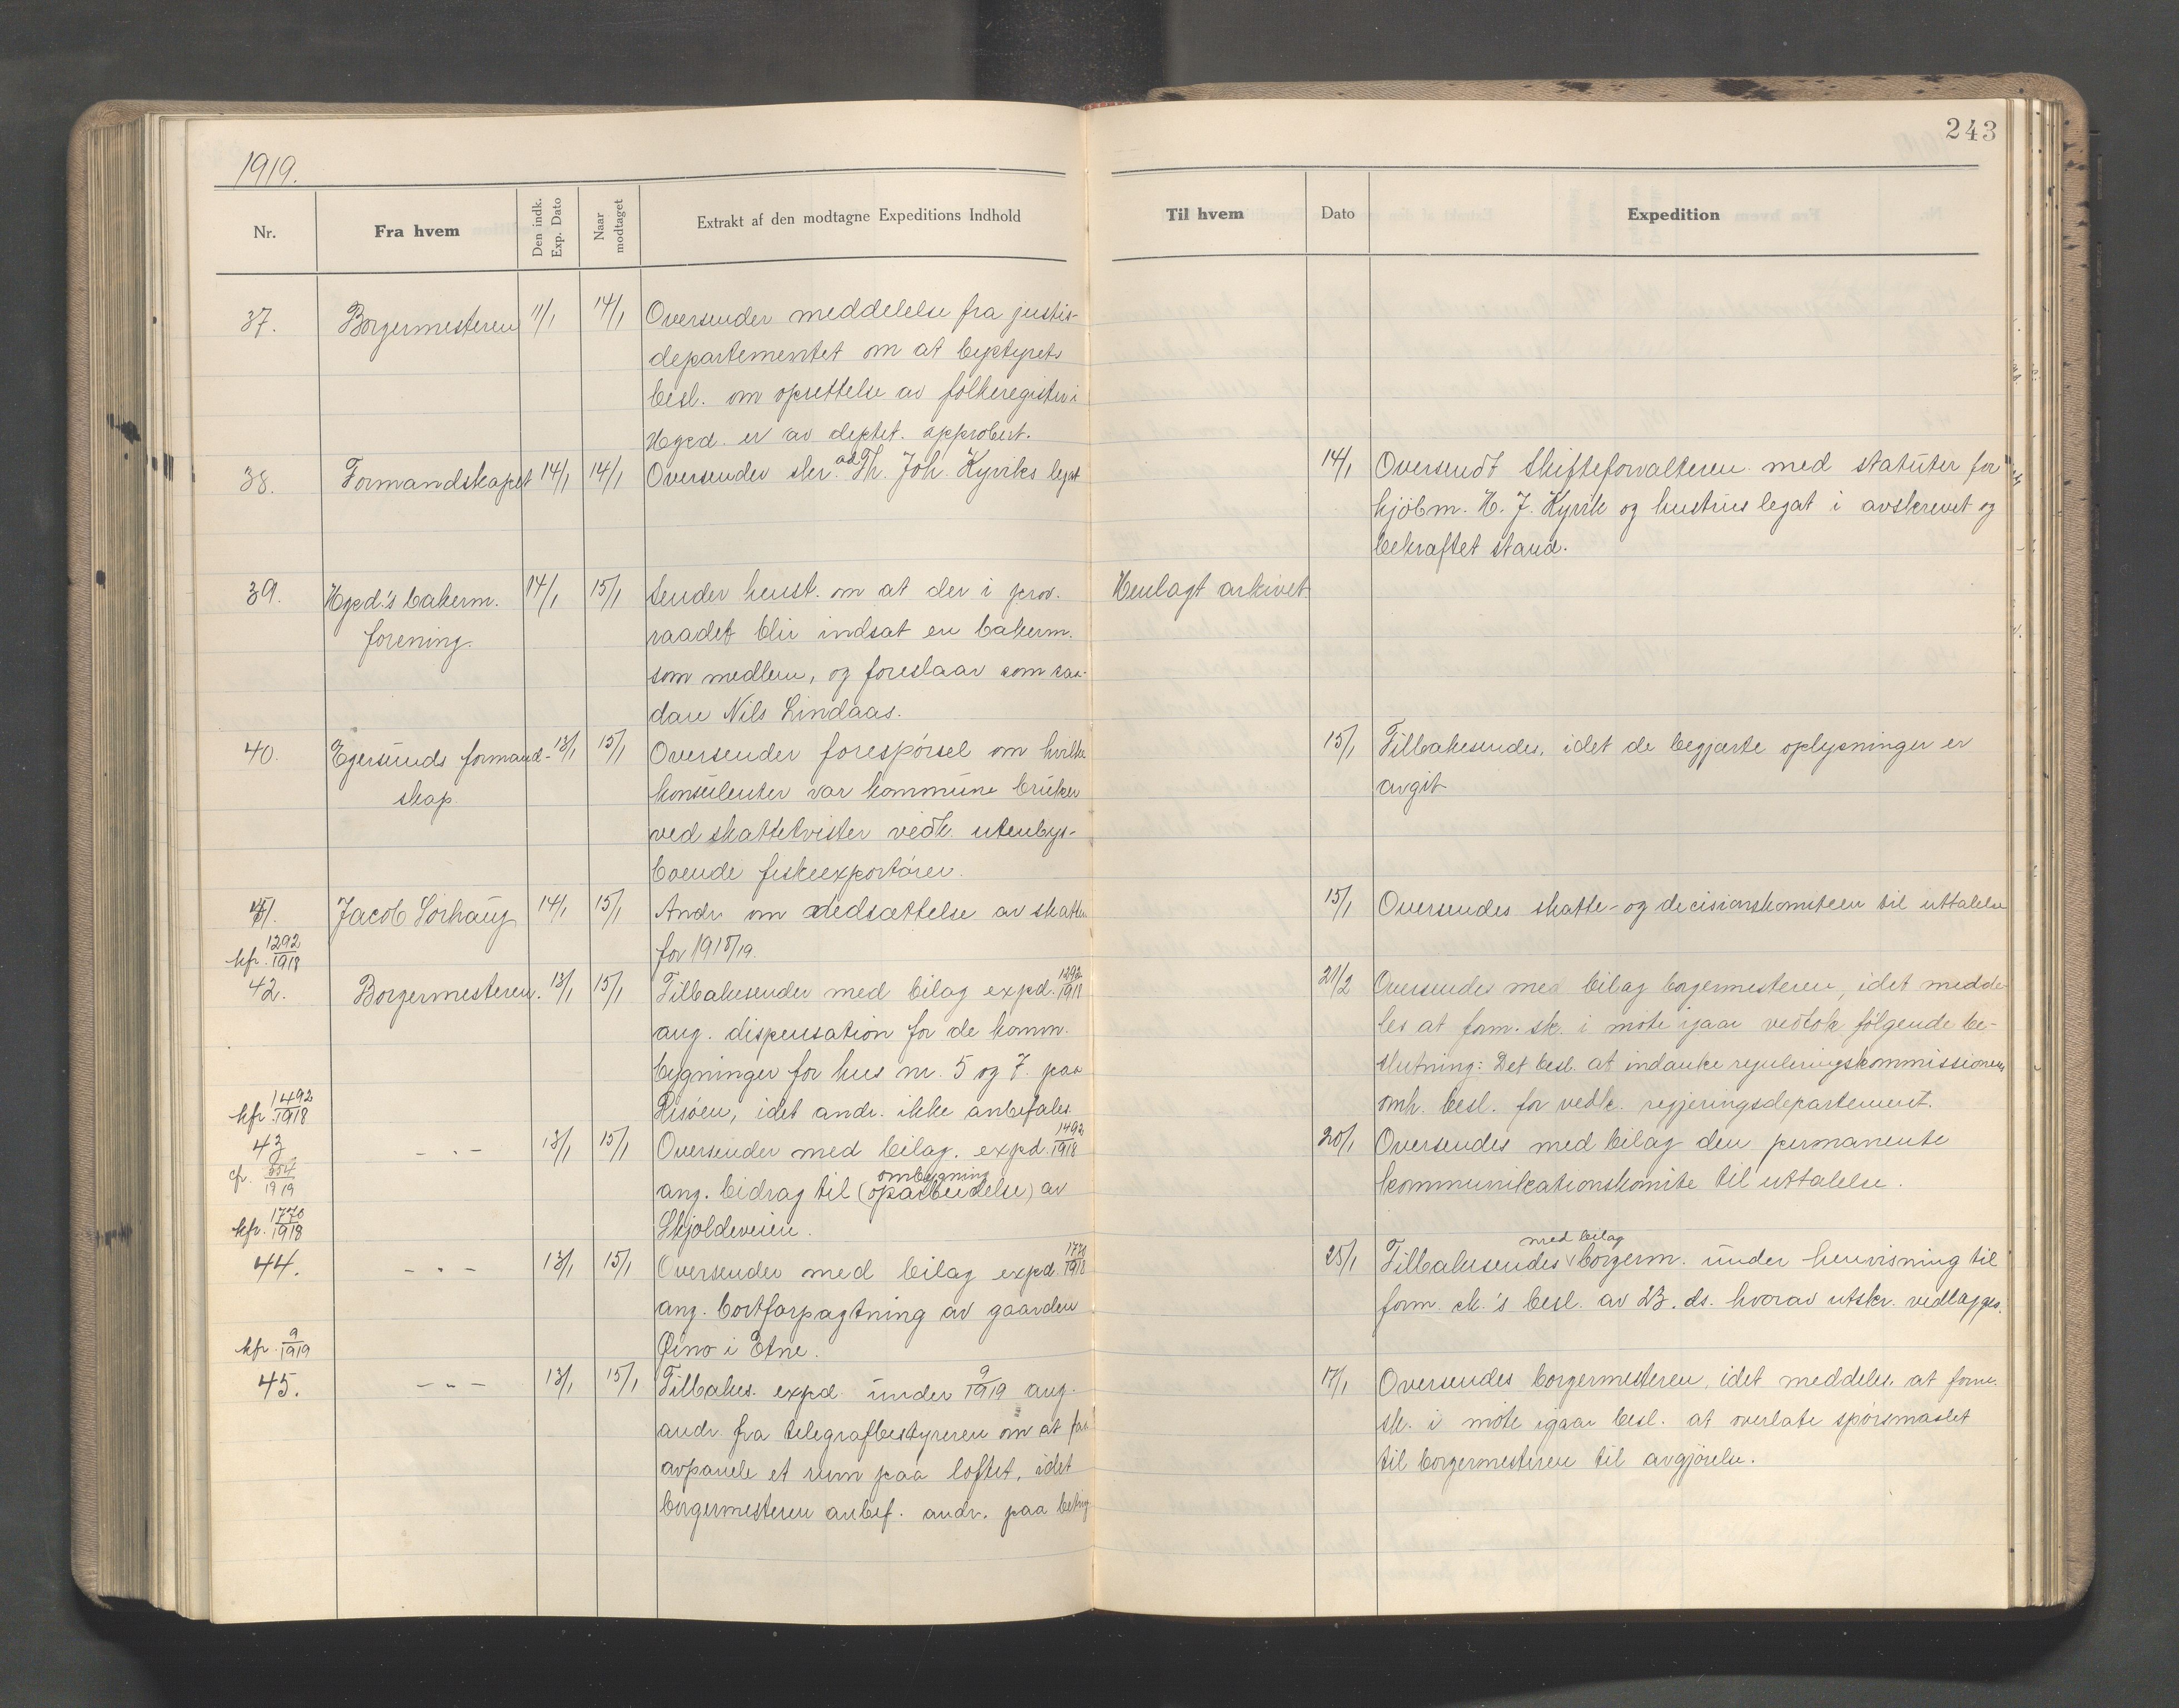 1919.
Nr.
Fra hvem
Den indk. Exp. Dato
Naar modtaget
Extrakt af den modtagne Expeditions Indhold
37.
Borgermesteren
11/1
14/1
Oversender meddelelse fra justis-
departementet om at bystyrets
besl. om oprettelse av folkeregister i
Hgsd. er av deptet. approbert.
38.
Formandskapet
14/1
14/1
Oversender skr. ad Th. Joh. Kyviks legat
39.
Hgsd.'s bakerm.
forening.
14/1
15/1
Sender henst. om at der i prov.
raadet blir indsat en bakerm.
som medlem, og foreslaar som saa-
dan Nils Lindaas.
40.
Egersunds formand-
skap.
13/1
15/1
Oversender forespørsel om hvilke
konsulenter vor kommune bruker
ved skattetvister vedk. utenbys-
boende fiskeexportører.
41.
Jacob Sørhaug
14/1
15/1
Andr. om nedsættelse av skatten
for 1918/19.
kfr. 1292/1918
42.
Borgermesteren.
13/1
15/1
Tilbakesender med bilag expd. 1292/1918
ang. dispensation for de komm.
bygninger for hus nr. 5 og 7. paa
Risøen, idet andr. ikke anbefales.
kfr. 1492/1918
43
cfr. 354/1919
- " -
13/1
15/1
Oversender med bilag. expd. 1492/1918
ombygning
ang. bidrag til (oparbeidelse) av
Skjoldeveien.
kfr. 1770/1918
44.
- " -
13/1
15/1
Oversender med bilag expd. 1770/1918
ang. bortforpagtning av gaarden
Øino i Etne.
kfr. 9/1919
45.
- " -
13/1
15/1
Tilbakes. expd. under 9/1919 ang.
andr. fra telegrafbestyreren om at faa
avpanele et rum paa loftet, idet
borgermesteren anbef. andr. paa beting
243
Til hvem
Dato
Expedition
14/1
Oversendt Skifteforvalteren med statuter for
kjøbm. H. J. Kyvik og hustrus legat i avskrevet og
bekræftet stand.
Henlagt arkivet
15/1
Tilbakesendes, idet de begjærte oplysninger er
avgit
15/1
Oversendes skatte- og decisionskomiteen til uttalelse
21/2
Oversendes med bilag borgermesteren, idet medde-
les at form. sk. i møte igaar vedtok følgende be-
slutning: Det besl. at indanke reguleringskommissionens
omh. besl. for vedk. regjeringsdepartement.
20/1
Oversendes med bilag den permanente
kommunikationskomite til uttalelse.
med bilag
25/1
Tilbakesendes v borgerm. under henvisning til
form. sk.'s besl. av 23. ds. hvorav utskr. vedlægges.
17/1
Oversendes borgermesteren, idet meddeles at form.
sk. i møte igaar besl. at overlate spørsmaalet
til borgermesteren til avgjørelse.